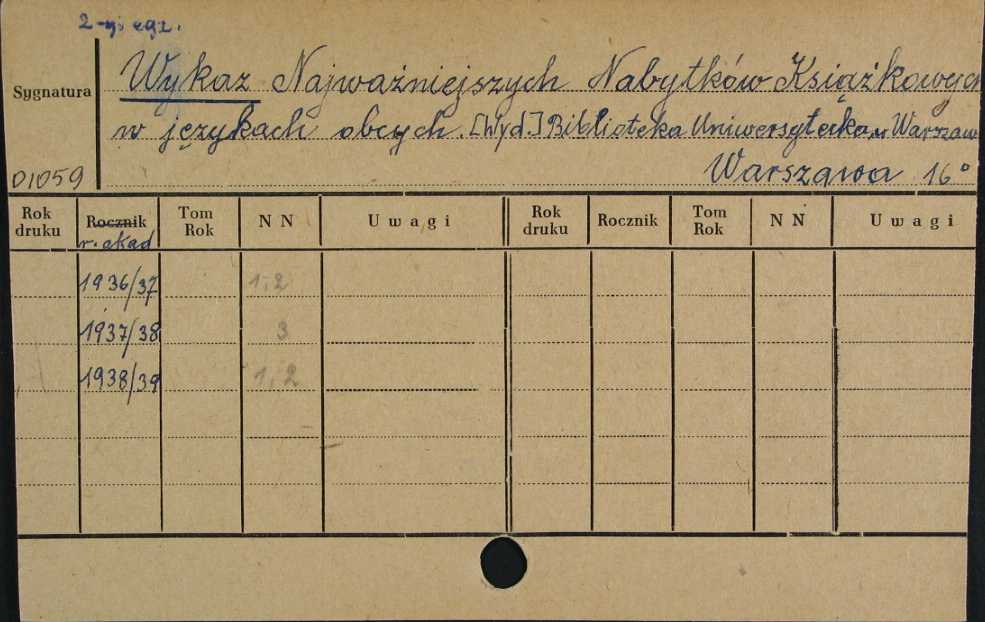 2-gi egz.
Sygnatura
01059
Wykaz Najważniejszych Nabytków Książkowych
w językach obcych. [Wyd.] Biblioteka Uniwersytecka w Warszaw
Warszawa 16°
Rok druku Rocznik Tom Rok NN Uwagi Rok druku Rocznik Tom Rok NN Uwagi
r. akad
1936/37 1, 2
1937/38 3
1938/39 1, 2